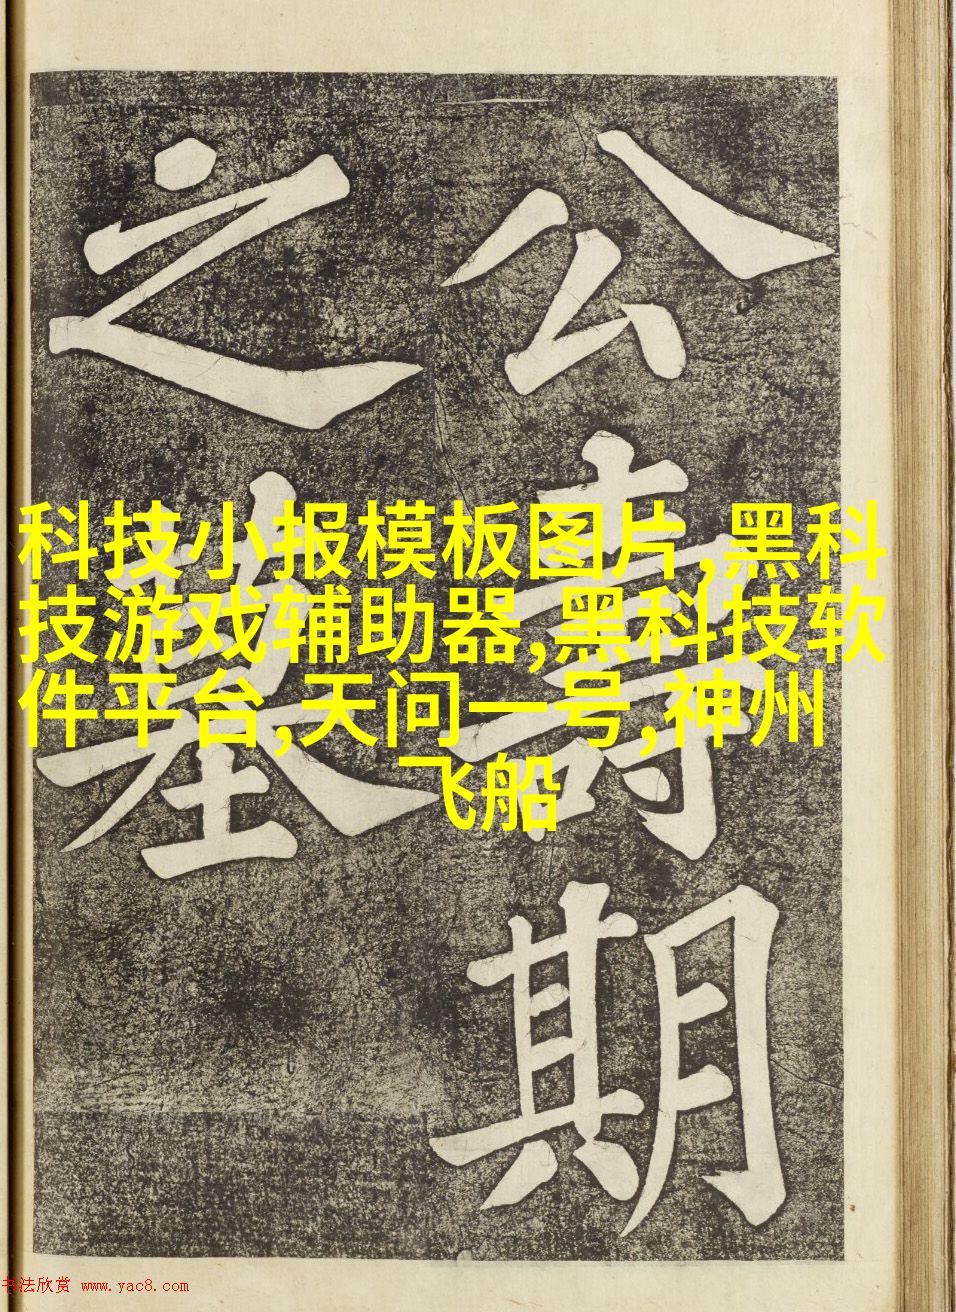 公壽期
之墓
科技小报模板图片,黑科
技游戏辅助器,黑科技软
件平台,天问一号,神州
飞船
书法欣赏 www.yac8.com